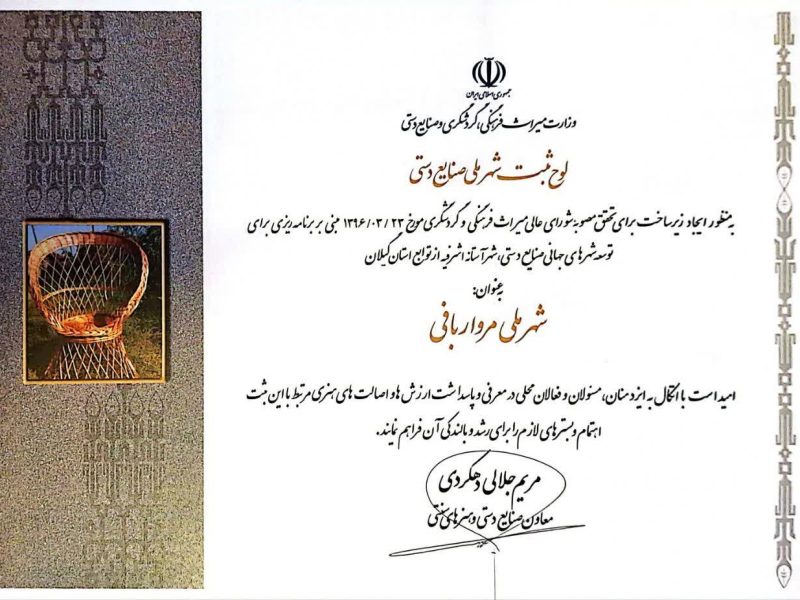 جمهوری اسلامی ایران
وزارت میراث فرهنگی، گردشگری و صنایع دستی
لوح ثبت شهر ملی صنایع دستی
به منظور ایجاد زیرساخت برای تحقق مصوبه شورای عالی میراث فرهنگی و گردشگری مورخ ۱۳۹۶/۰۳/۲۳ مبنی بر برنامه ریزی برای
توسعه شهرهای جهانی صنایع دستی، شهر آستانه اشرفیه از توابع استان گیلان
به عنوان:
شهر ملی مروار بافی
امید است با اتکال به ایزد منان، مسئولان و فعالان محلی در معرفی و پاسداشت ارزش ها و اصالت های هنری مرتبط با این ثبت
اهتمام و بسترهای لازم را برای رشد و بالندگی آن فراهم نمایند.
مریم جلالی دهکردی
معاون صنایع دستی و هنرهای سنتی